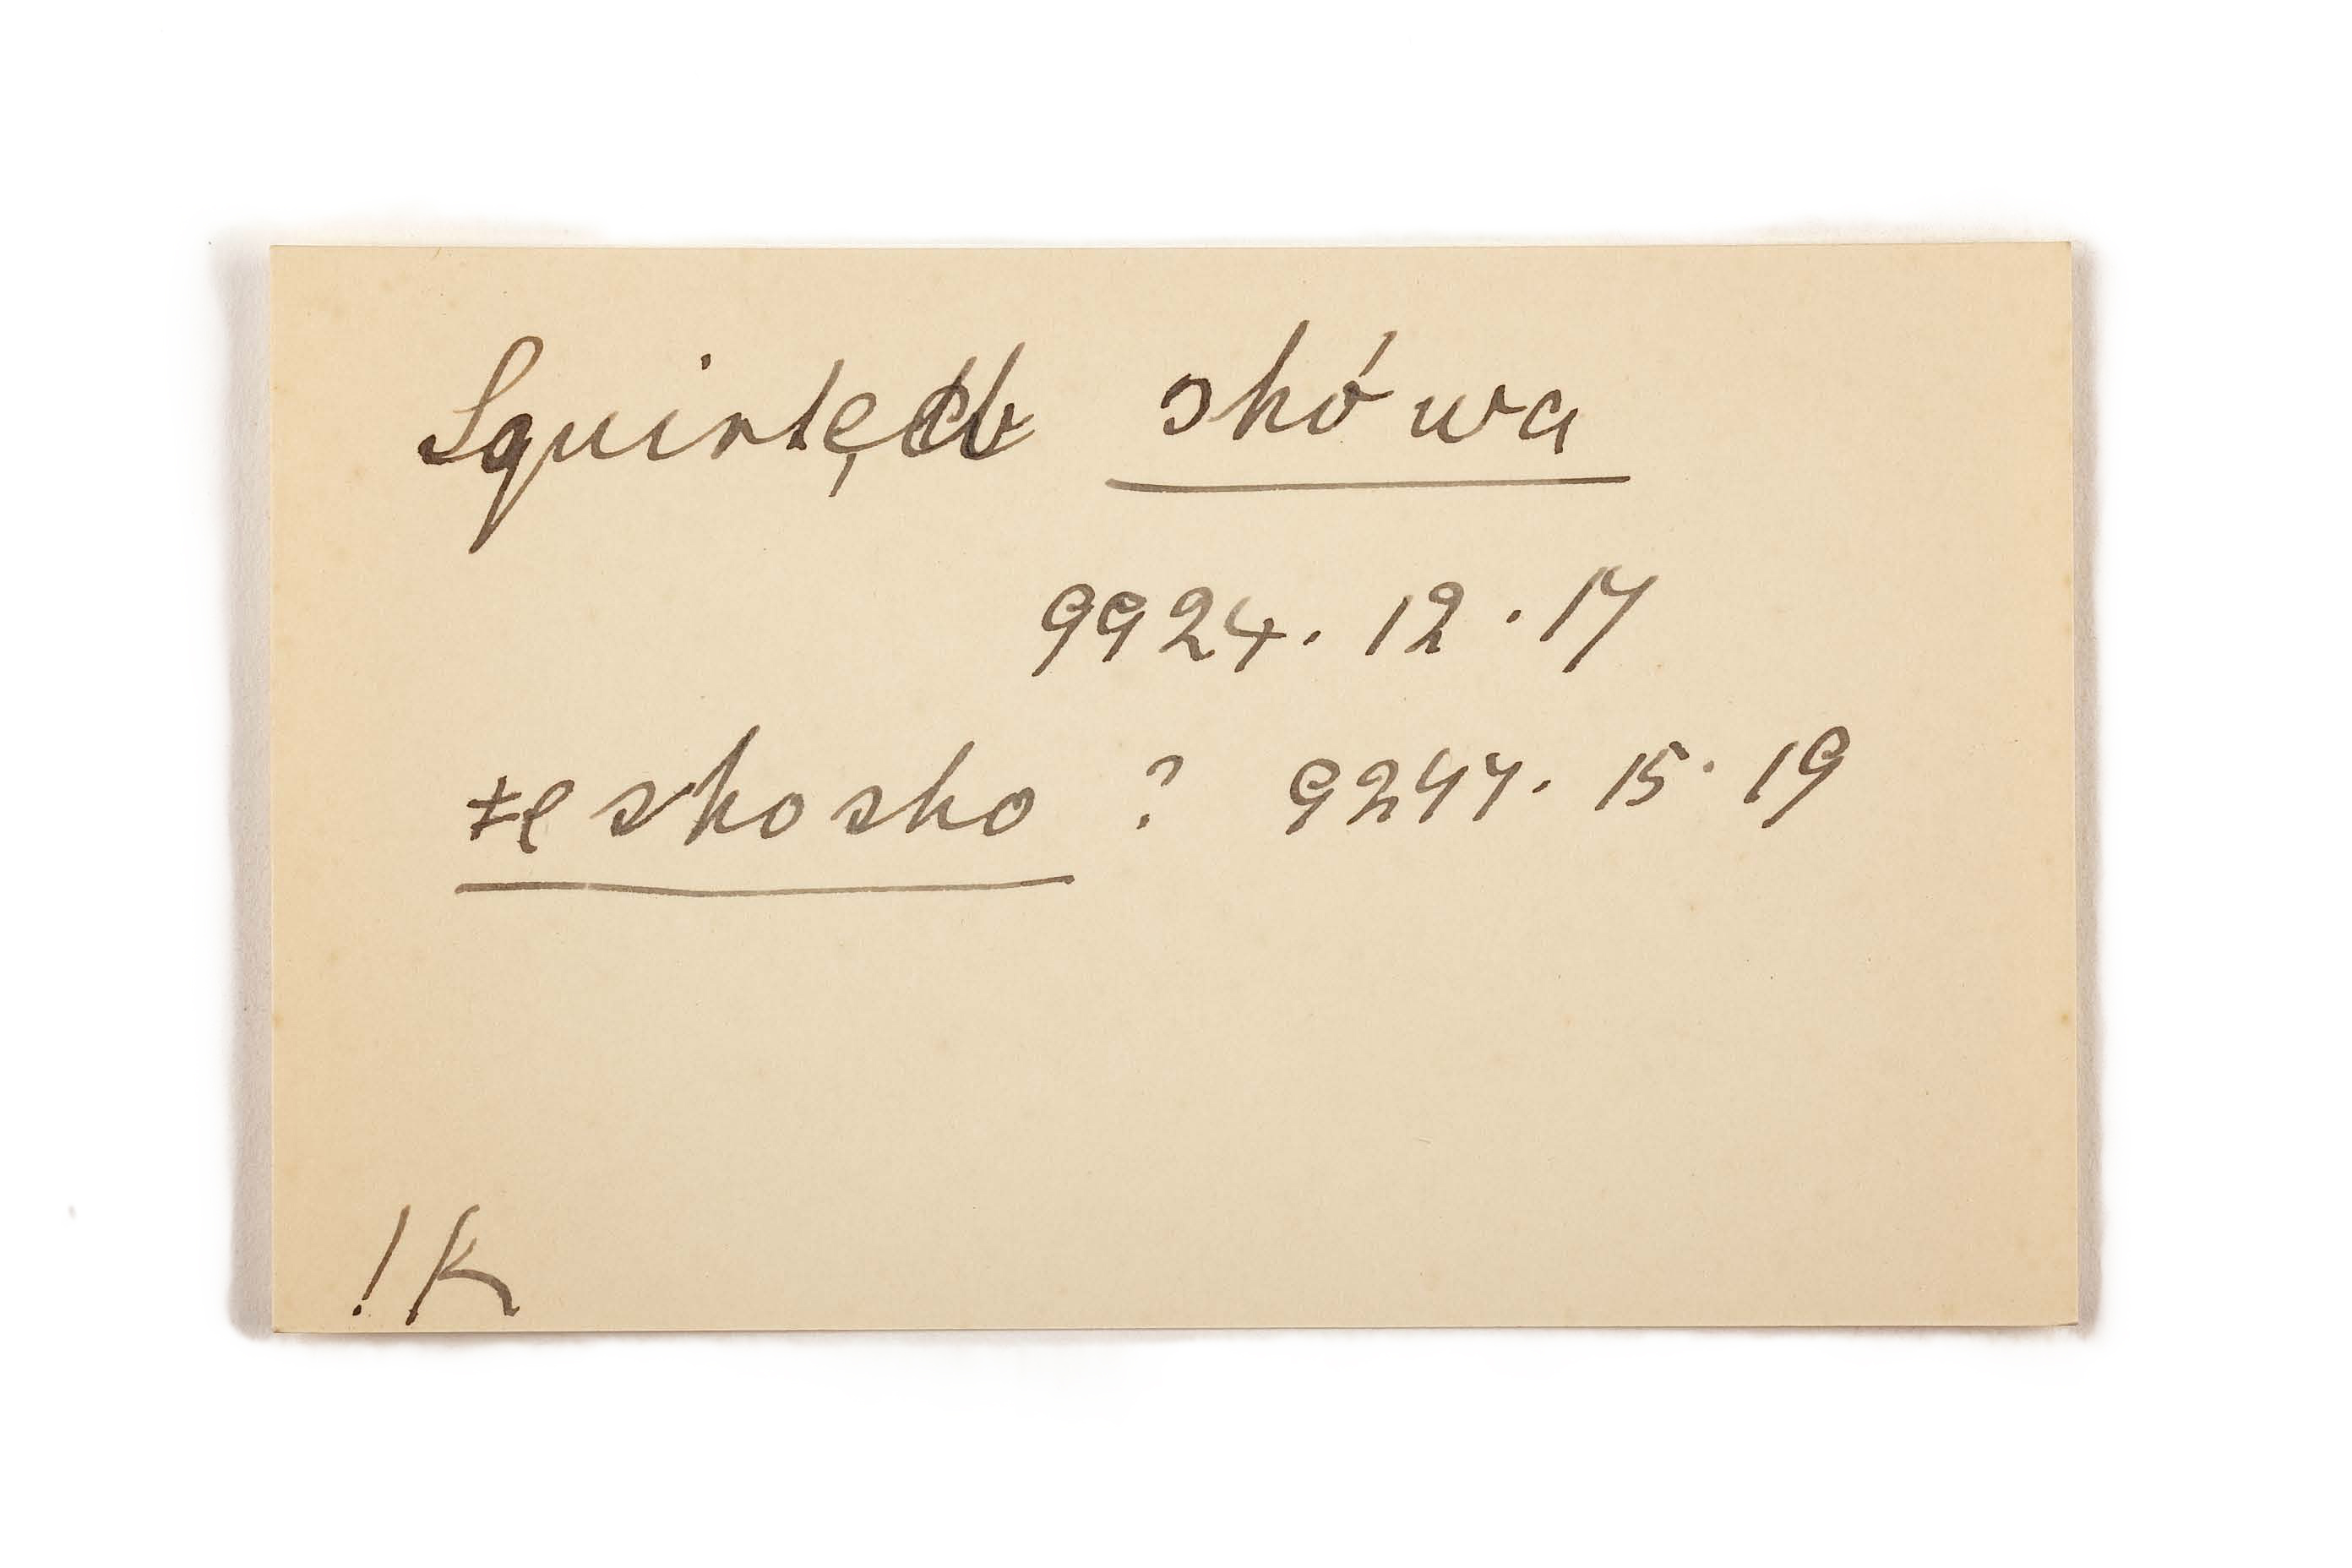 Squirted shówa
9924. 12 . 17
ǂe shosho ? 9277. 15. 19
!K